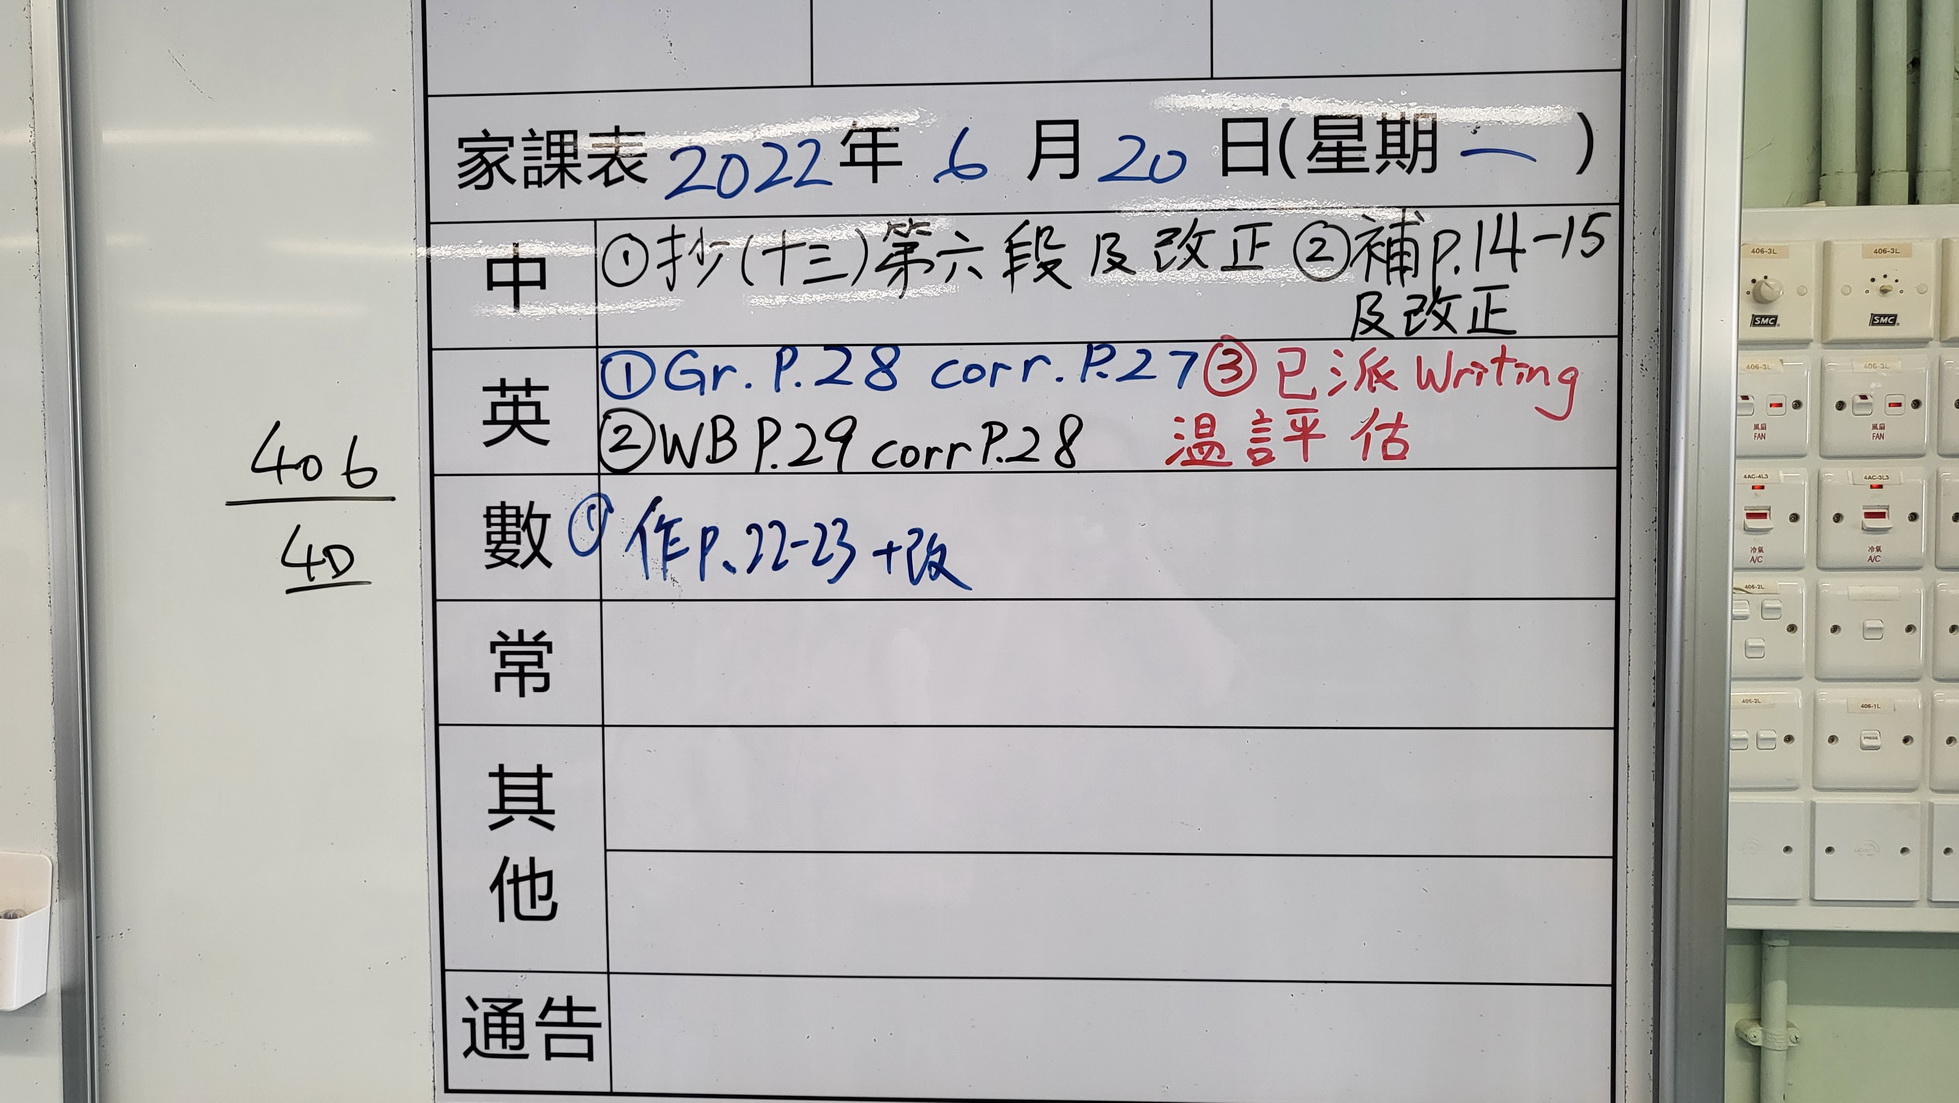 家課表 2022年 6月 20日(星期一)
中 ①抄(十三)第六段及改正 ②補P.14-15
及改正
英 ①Gr. P.28 corr. P.27 ③已派Writing
②WB P.29 corr P.28 溫評估
數 ① 作P.22-23+改
常
其他
通告
406
4D
406-3L
406-3L
SMC
SMC
406-3L
406-3L
風扇
FAN
風扇
FAN
4AC-4L3
4AC-3L3
冷氣
A/C
冷氣
A/C
406-2L
406-2L
406-1L
PRESS